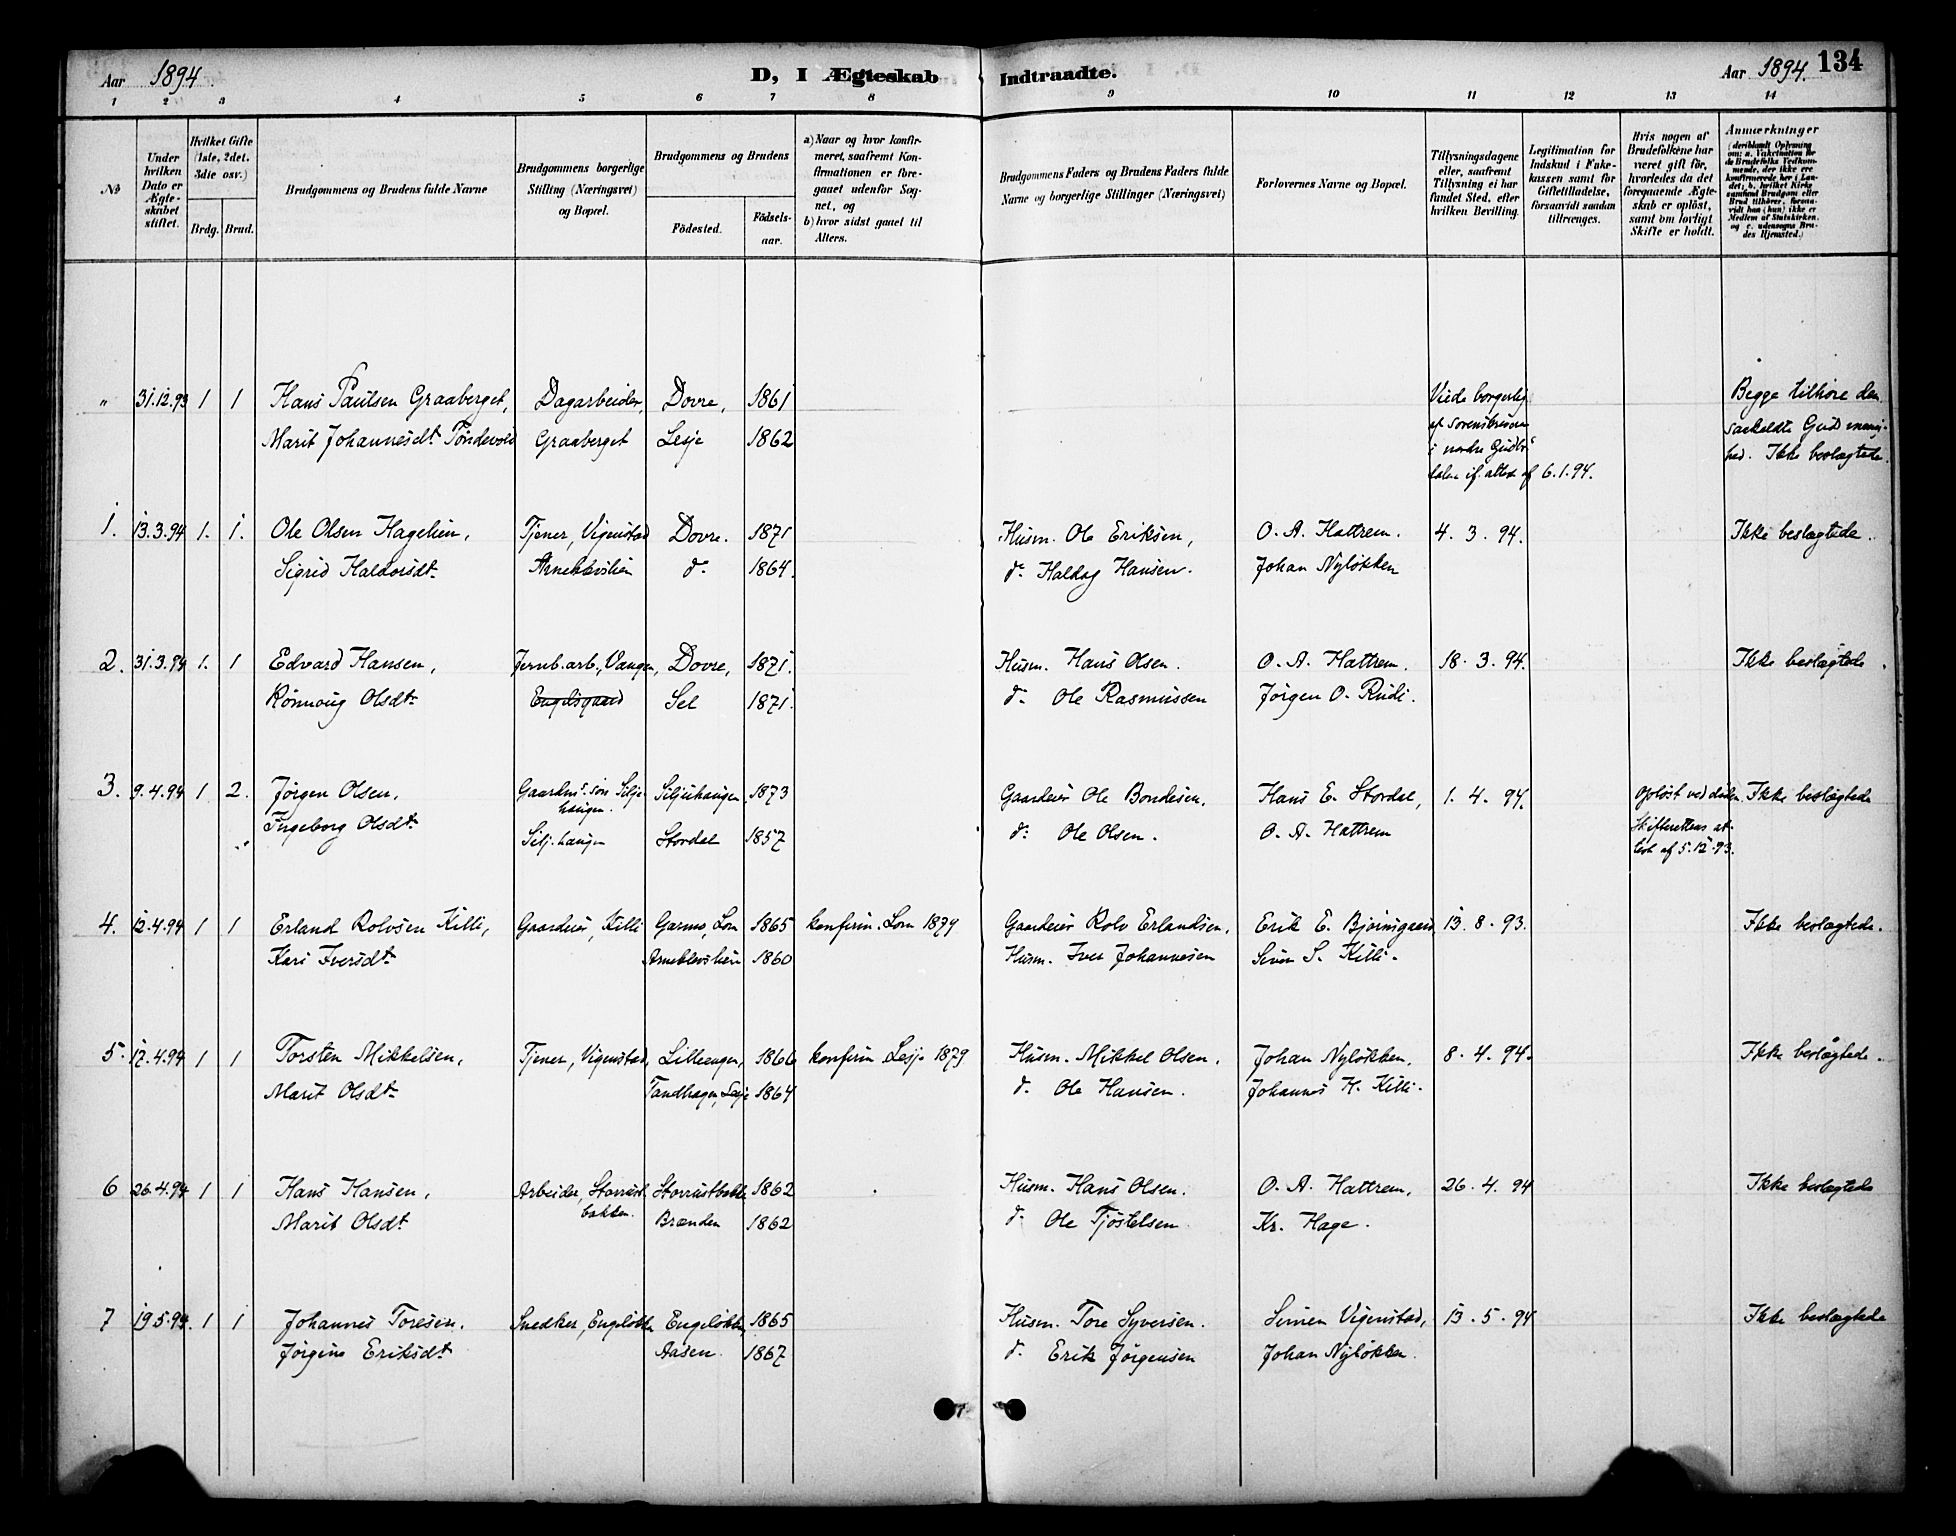 Aar 1894.
D, I Ægteskab Indtraadte.
Aar 1894. 134
1 2 3 4 5 6 7 8 9 10 11 12 13 14
№
Under hvilken Dato er Ægteskabet stiftet.
Hvilket Gifte (1ste, 2det, 3die osv.)
Brdg. Brud.
Brudgommens og Brudens fulde Navne
Brudgommens borgerlige Stilling (Næringsvei) og Bopæl.
Brudgommens og Brudens
Fødested. Fødselsaar.
a) Naar og hvor konfirmeret, saafremt Konfirmationen er foregaaet udenfor Sognet, og
b) hvor sidst gaaet til Alters.
Brudgommens Faders og Brudens Faders fulde Navne og borgerlige Stillinger (Næringsvei)
Forlovernes Navne og Bopæl.
Tillysningsdagene eller, saafremt Tillysning ei har fundet Sted, efter hvilken Bevilling.
Legitimation for Indskud i Enkekassen samt for Giftetilladelse, forsaavidt saadan tiltrænges.
Hvis nogen af Brudefolkene har været gift før, hvorledes da det foregaaende Ægteskab er opløst, samt om lovligt Skifte er holdt.
Anmærkninger
(deriblandt Oplysning om: a. Vakcination for de Brudefolks Vedkommende, der ikke ere konfirmerede her i Landet; b. hvilket Kirkesamfund Brudgom eller Brud tilhører, forsaavidt han (hun) ikke er Medlem af Statskirken, og c. udensogns Brudes Hjemsted.)
" 31.12.93 1 1 Hans Paulsen Graaberget, Dagarbeider, Dovre, 1861 Viede borgerlig Begge tilhøre den
Marit Johannesdt. Tøndevold Graaberget Lesje 1862 af Sorenskriveren saakaldte Guds menig-
i nordre Gudbr. hed. Ikke beslægtede.
dalen if. attest af 6.1.94.
1. 13.3.94 1. 1. Ole Olsen Hagelien, Tjener, Vigenstad Dovre. 1871 Husm. Ole Eriksen, O. A. Hattrem. 4. 3. 94. Ikke beslægtede.
Sigrid Haldorsdt. Arneklevlien do. 1864. do. Haldog Hansen. Johan Nyløkken
2. 31.3.94 1. 1 Edvard Hansen, Jernb.arb., Vangen, Dovre, 1871. Husm. Hans Olsen. O. A. Hattrem. 18. 3. 94. Ikke beslægtede.
Rønnoug Olsdt. Engelsgaard Sel 1871. do. Ole Rasmussen Jørgen O. Rudi.
3. 9.4.94 1 2. Jørgen Olsen, Gaardms. søn Silje- Siljuhaugen, 1873 Gaardeier Ole Bondesen, Hans E. Stordal, 1. 4. 94. Opløst ved døden. Ikke beslægtede
haugen.
Ingeborg Olsdt. Silj.haugen Stordal 1857 do. Ole Olsen. O. A. Hattrem Skifterettens at-
test af 5.12.93.
4. 12.4.94 1 1 Erland Rolvsen Killi, Gaardeier, Killi Garmo, Lom 1865 konfirm. Lom 1879 Gaardeier Rolv Erlandsen, Erik E. Bjørnsgaard 13. 8. 93. Ikke beslægtede.
Kari Iversdt. Arneklevlien 1860 Husm. Iver Johannesen Siver S. Killi.
5. 17.4.94 1 1 Torsten Mikkelsen, Tjener, Vigenstad, Lilleengen, 1866 konfirm Lesje 1879 Husm. Mikkel Olsen. Johan Nyløkken. 8. 4. 94. Ikke beslægtede.
Marit Olsdt. Tandhagen, Lesje 1864 do. Ole Hansen. Johannes H. Killi.
6 26.4.94 1 1 Hans Hansen, Arbeider, Storrust- Storrustbakk. 1862 Husm. Hans Olsen. O. A. Hattrem, 26. 4. 94 Ikke beslægtede
bakken.
Marit Olsdt Brænden 1862 do. Ole Tjøstelsen Kr. Hage.
7 19.5.94. 1 1 Johannes Toresen. Snedker, Engeløkk. Engeløkken, 1865 Husm. Tore Syversen. Simen Vigenstad, 13. 5. 94 Ikke beslægtede
Jørgine Eriksdt. Aasen. 1867 do. Erik Jørgensen Johan Nyløkken.